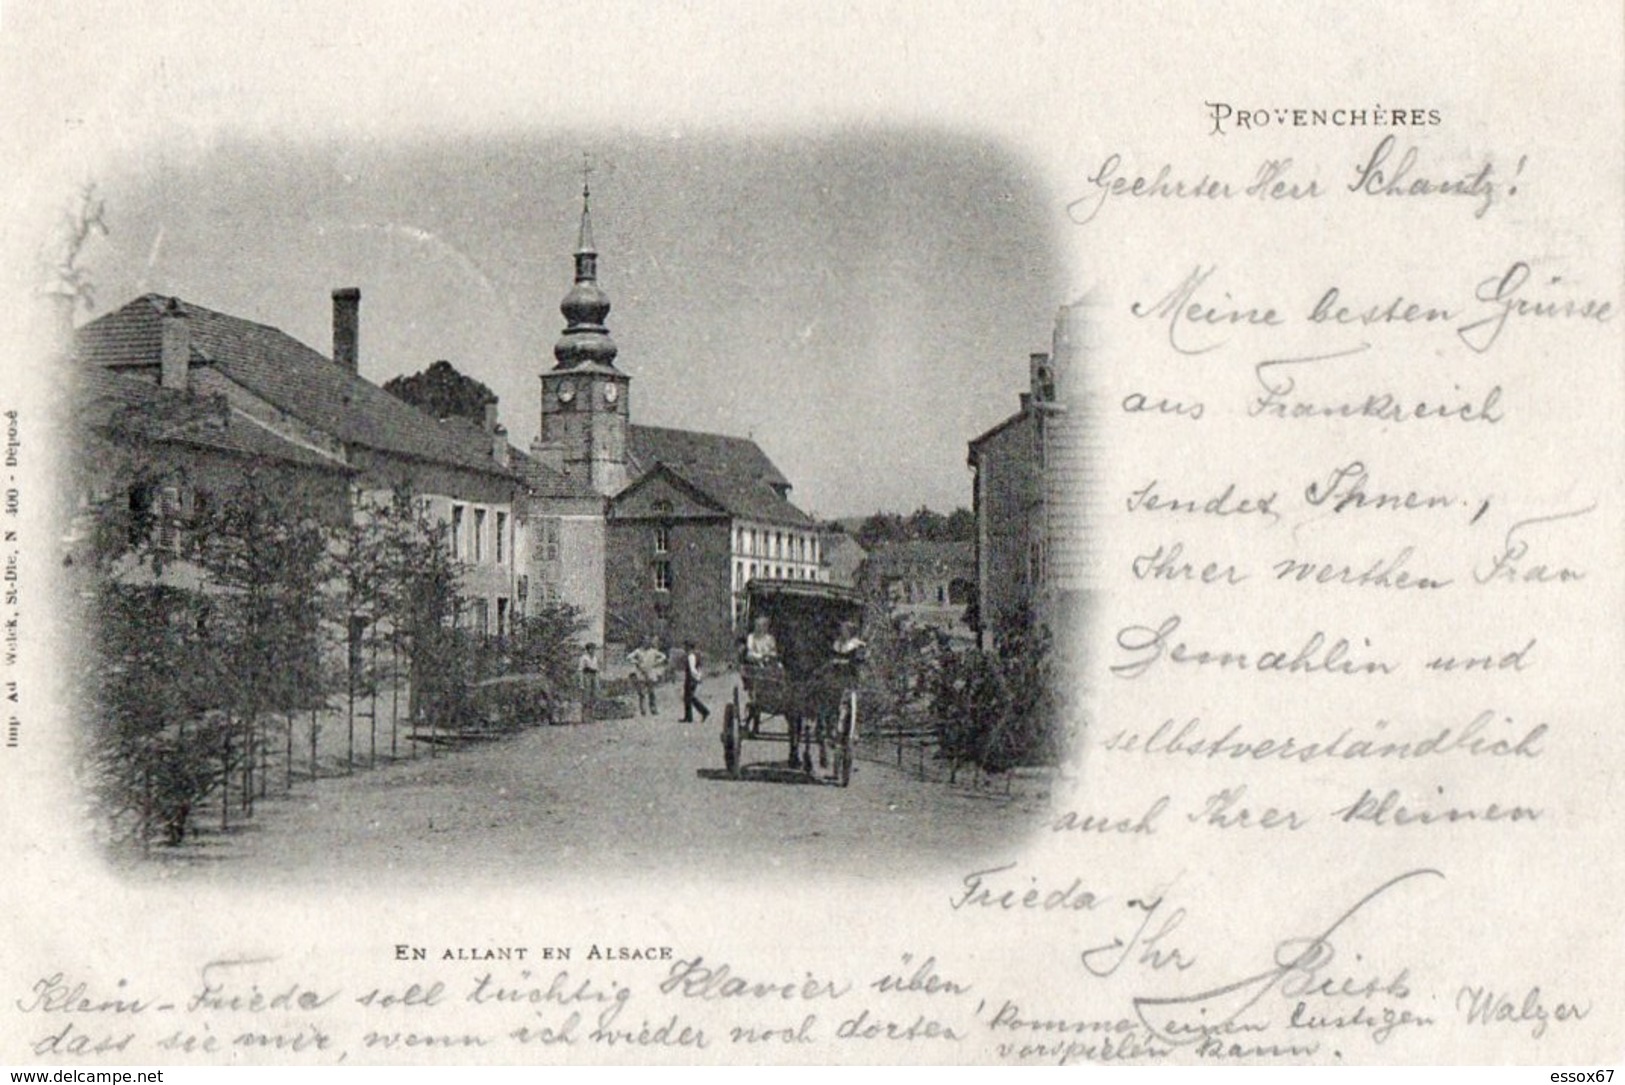 PROVENCHÈRES
Geehrter Herr Schantz!
Meine besten Grüsse
aus Frankreich
sendet Ihnen,
Ihrer werthen Frau
Gemahlin und
selbstverständlich
auch Ihrer kleinen
Frieda
Ihr
EN ALLANT EN ALSACE
Klein-Frieda soll tüchtig Klavier üben,
dass sie mir, wenn ich wieder nach dorten komme, einen lustigen Walzer
vorspielen kann.
Imp. Ad. Weick, St-Dié, N 400 - Déposé
www.delcampe.net
essox67